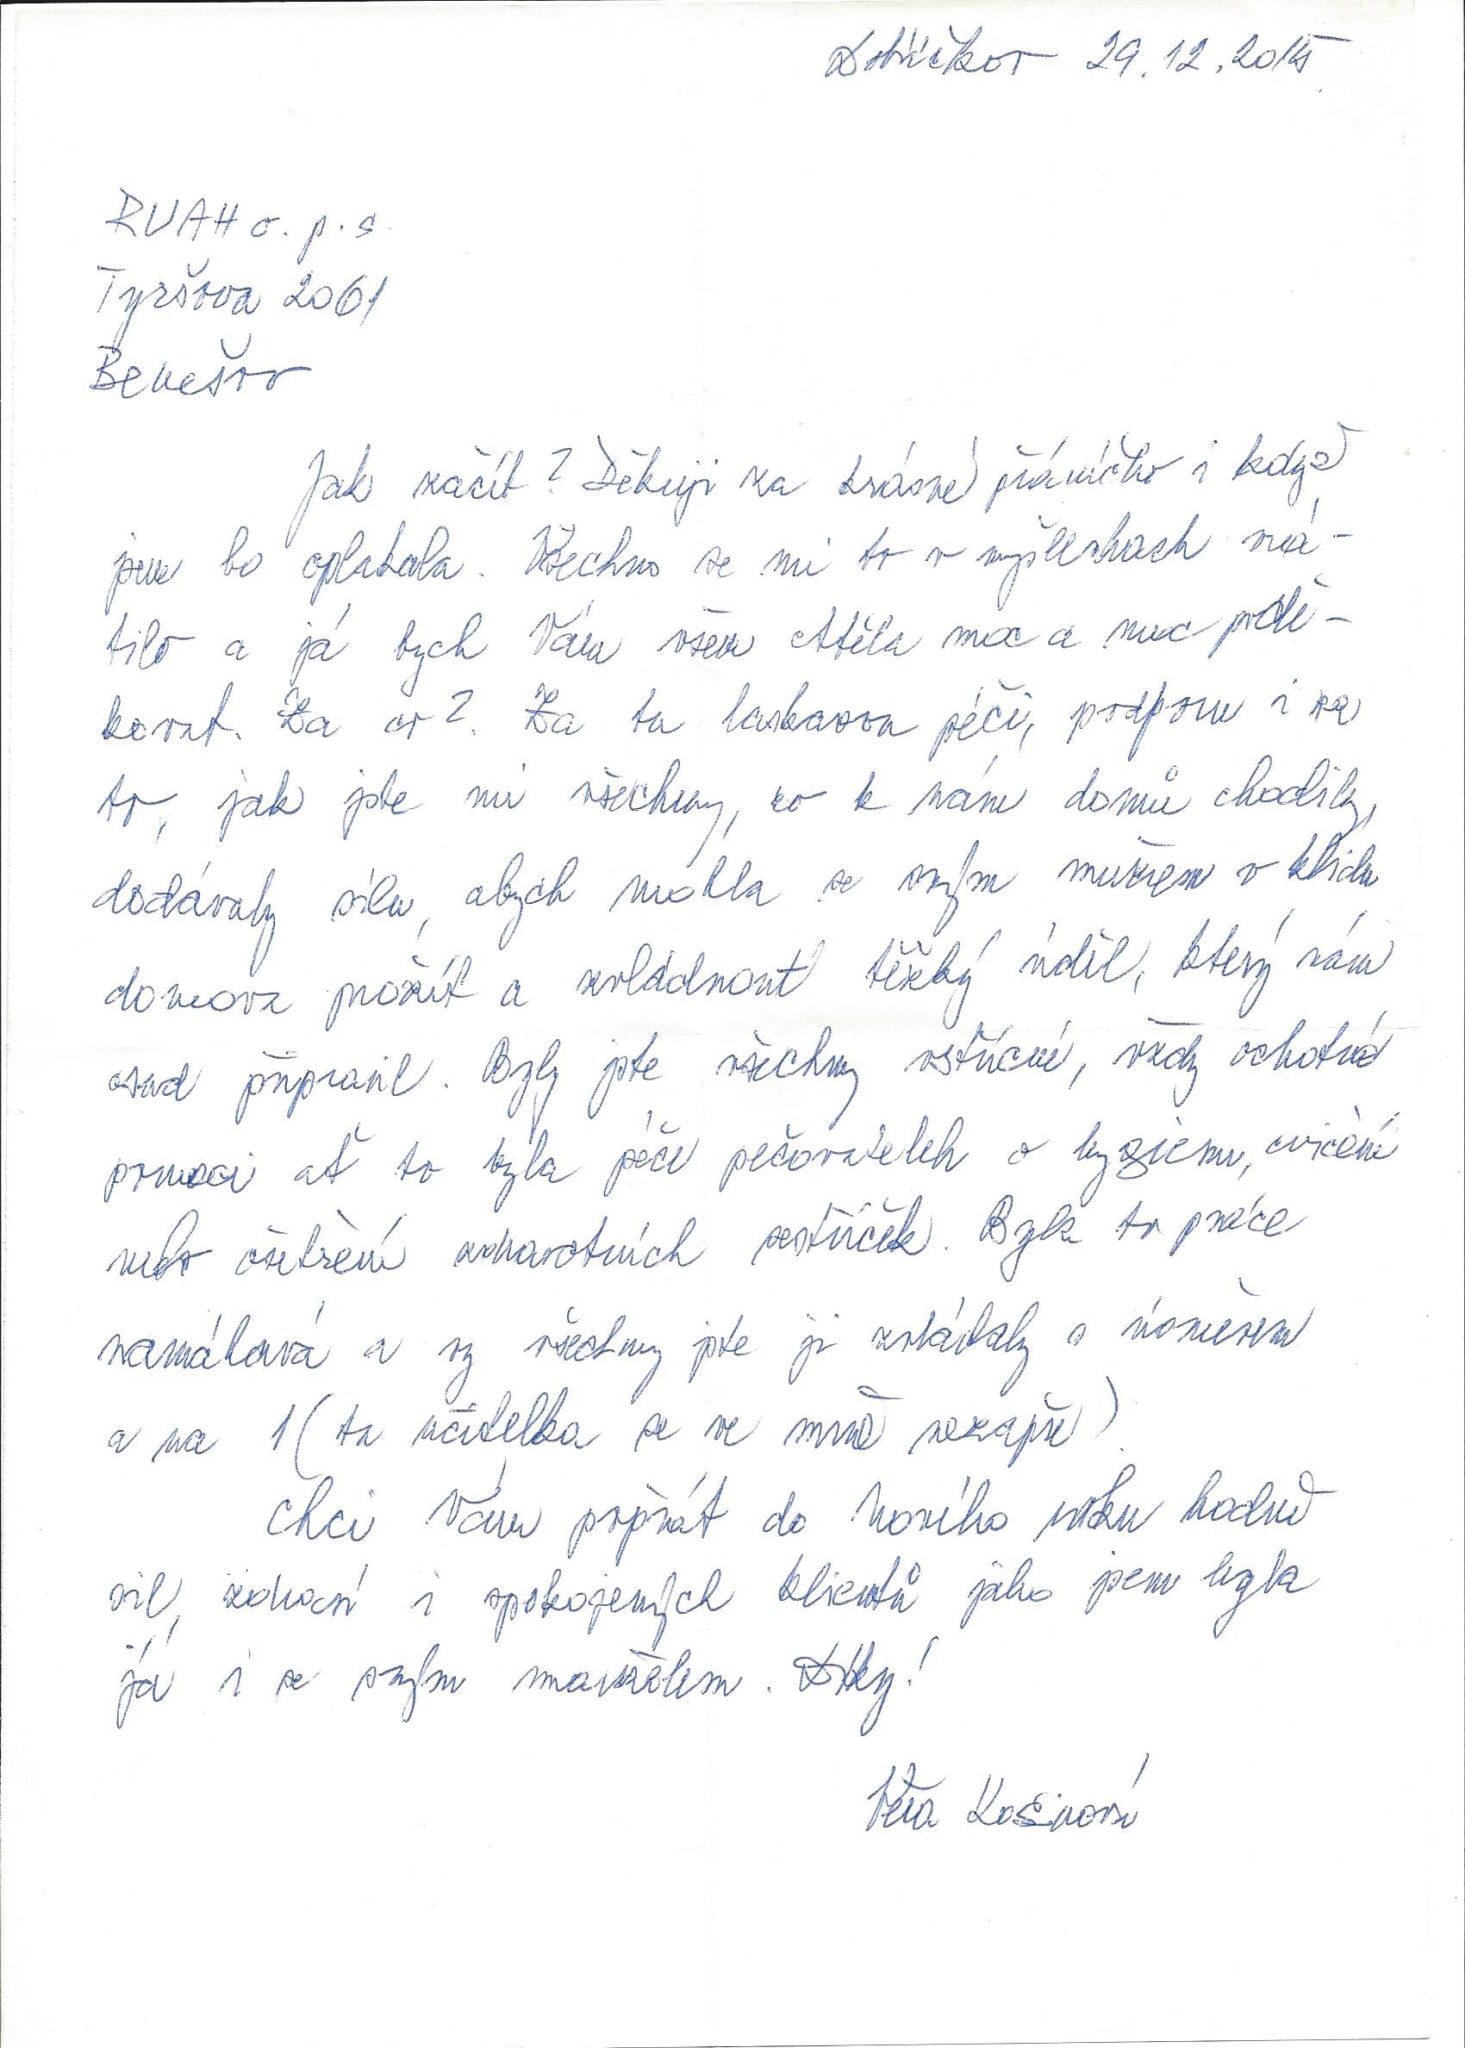 Dobříčkov 29.12.2015
RUAH o.p.s.
Tyršova 2061
Benešov
Jak začít? Děkuji za krásné přáníčko i když
jsem ho oplakala. Všechno se mi to v myšlenkách vrá-
tilo a já bych Vám všem chtěla moc a moc podě-
kovat. Za co? Za tu laskavou péči, podporu i za
to, jak jste mi všechny, co k nám domů chodily,
dodávaly sílu, abych mohla se svým mužem v klidu
domova prožít a zvládnout těžký úděl, který nám
osud připravil. Byly jste všechny vstřícné, vždy ochotné
pomoci ať to byla péče pečovatelek o hygienu, cvičení
nebo ošetření zdravotních sestřiček. Byla to práce
namáhavá a vy všechny jste ji zvládaly s úsměvem
a na 1 (ta učitelka se ve mně nezapře)
Chci Vám popřát do Nového roku hodně
sil, zdraví i spokojených klientů jako jsem byla
já i se svým manželem. Díky!
Věra